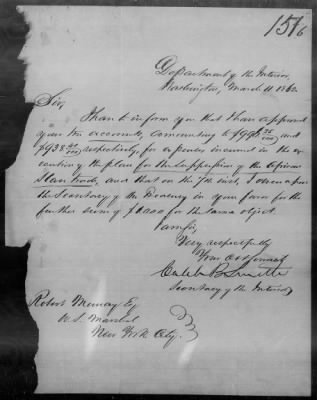 151/6
Department of the Interior,
Washington, March 11 1862.
Sir,
I have to inform you that I have approved
your two accounts, amounting to and
respectively, for expenses incurred in the ex-
ecution of the plan for the suppression of the African
Slave trade, and that on the 7th inst, I drew upon
the Secretary of the Treasury in your favor for the
further sum of for the same object.
I am, Sir,
Very respectfully
Your Obt Servant
Caleb B Smith
Secretary of the Interior
Robert Murray Esq
U. S. Marshal
New York City.